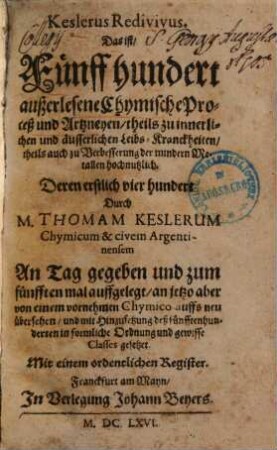 Keslerus Redivivus.
Das ist/
Fünff hundert
außerlesene Chymische Pro-
ceß und Artzneyen/theils zu innerli-
chen und äusserlichen Leibs-Kranckheiten/
theils auch zu Verbesserung der mindern Me-
tallen hochnutzlich.
Deren erstlich vier hundert
Durch
M. THOMAM KESLERUM
Chymicum & civem Argenti-
nensem
An Tag gegeben und zum
fünfften mal auffgelegt/an jetzo aber
von einem vornehmen Chymico auffs neu
übersehen/und mit Hinzusetzung deß fünfftenhun-
derten in formliche Ordnung und gewisse
Classes gesetzet.
Mit einem ordentlichen Register.
Franckfurt am Mayn/
In Verlegung Johann Beyers.
M. DC. LXVI.